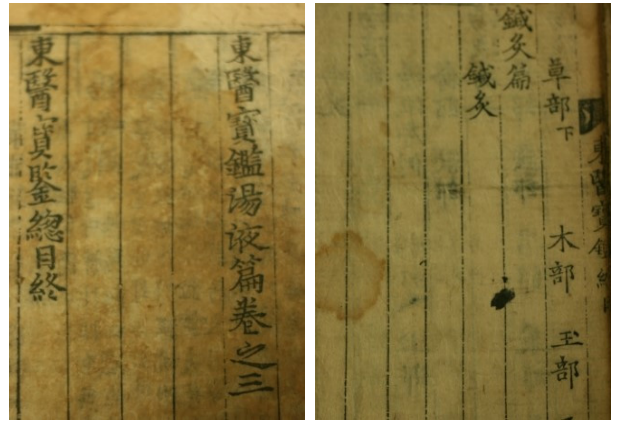 東醫寶鑑湯液篇卷之三
東醫寳鍳總目終
東醫寶鑑總目
草部下 木部 玉部
鍼灸篇
鍼灸